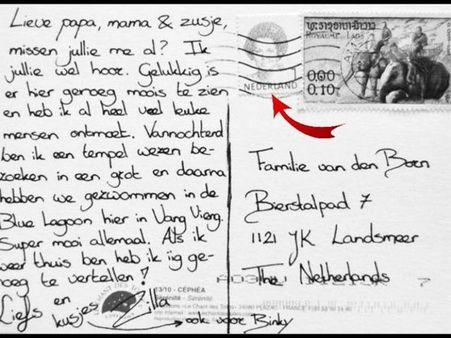 Lieve papa, mama & zusje,
missen jullie me al? Ik
jullie wel hoor. Gelukkig is
er hier genoeg moois te zien
en heb ik al heel veel leuke
mensen ontmoet. Vannochtend
ben ik een tempel wezen be-
zoeken in een grot en daarna
hebben we gezwommen in de
Blue Lagoon hier in Vang Vieng.
Super mooi allemaal. Als ik
weer thuis ben heb ik iig ge-
noeg te vertellen!
Liefs en
kusjes Zilla
→ ook voor Binky
NEDERLAND
ROYAUME LAOS
0.00
0.10
Familie van den Born
Bierstalpad 7
1121 JK Landsmeer
The Netherlands
13/10 - CEPHÉA
Sérénité - Sérénité